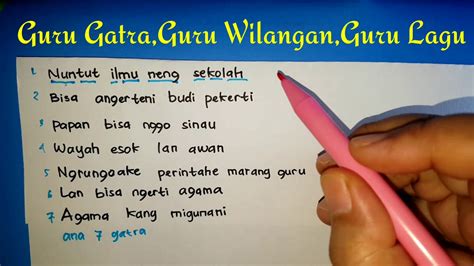 Guru Gatra,Guru Wilangan,Guru Lagu
1 Nuntut ilmu neng sekolah
2 Bisa angerteni budi pekerti
3 Papan bisa nggo sinau
4 Wayah esok lan awan
5 Ngrungoake perintahe marang guru
6 Lan bisa ngerti agama
7 Agama kang migunani
ana 7 gatra